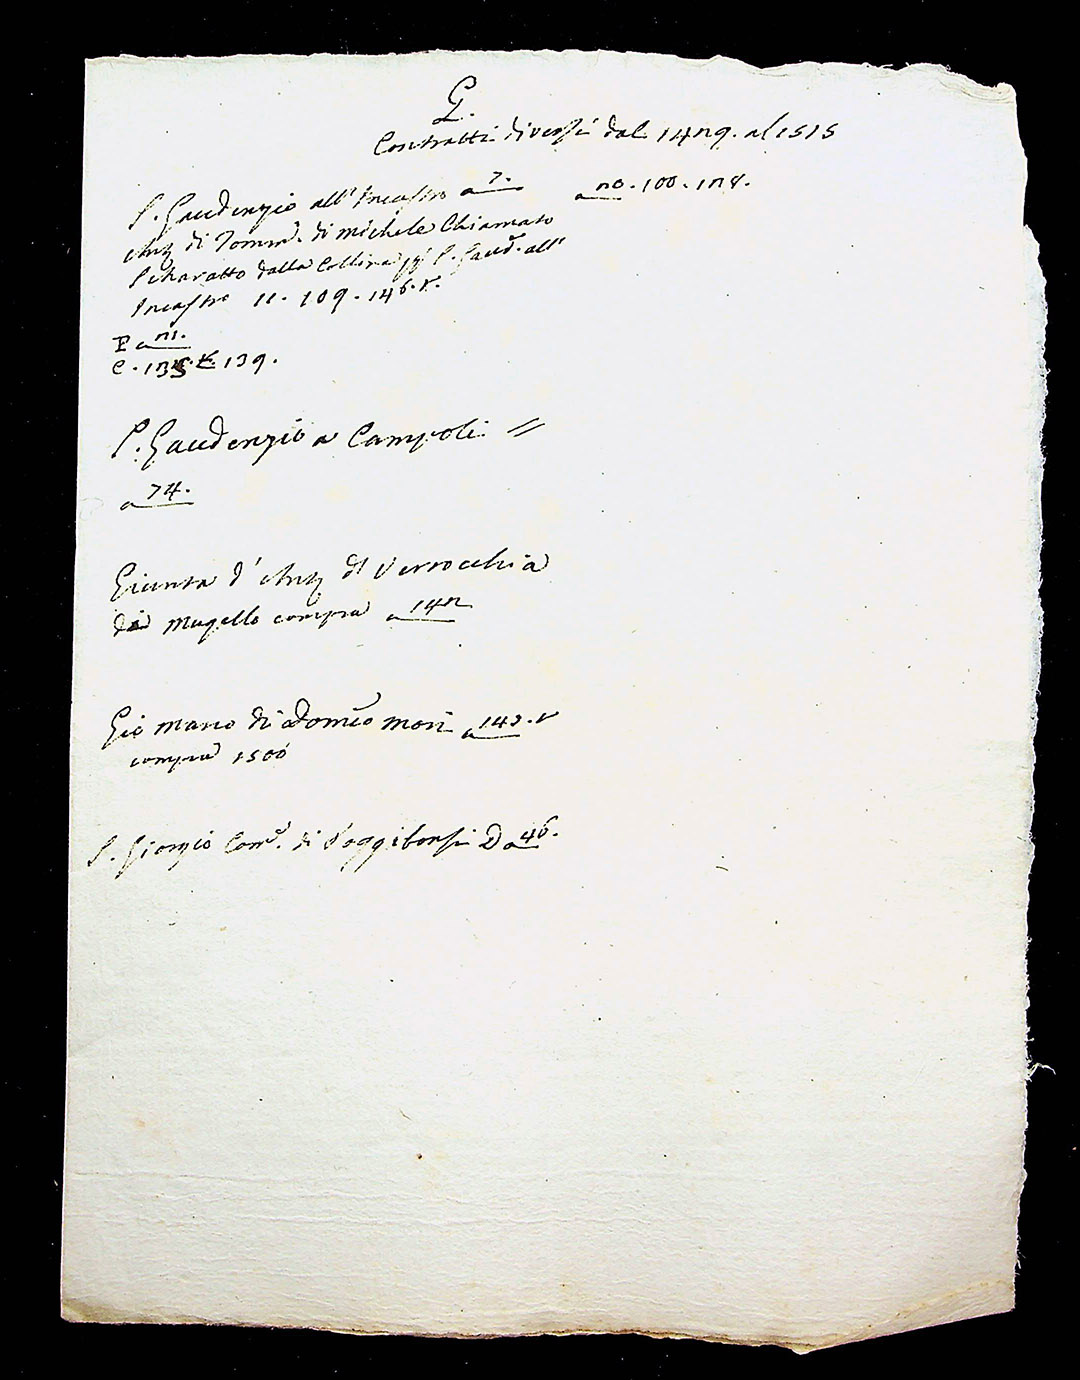 G.
Contratti diversi dal 1429. al 1515
S. Gaudenzio all' Incastro a 7. a 20. 100. 128.
Ant.º di Tomm.º di Michele Chiamato
Scharatto dalla Collina pp.º S. Gaud.º all'
Incastro 11. 109. 146. t.
E a 21.
C. 135. t. 139.
S. Gaudenzio a Campoli =
a 74.
Giunta d' Ant.º di Verrocchia
di Mugello compra a 142
Gio Mario di Domeco Mori a 143. t
compra 1500
S. Giorgio Com.º di Poggibonsi D a 46.